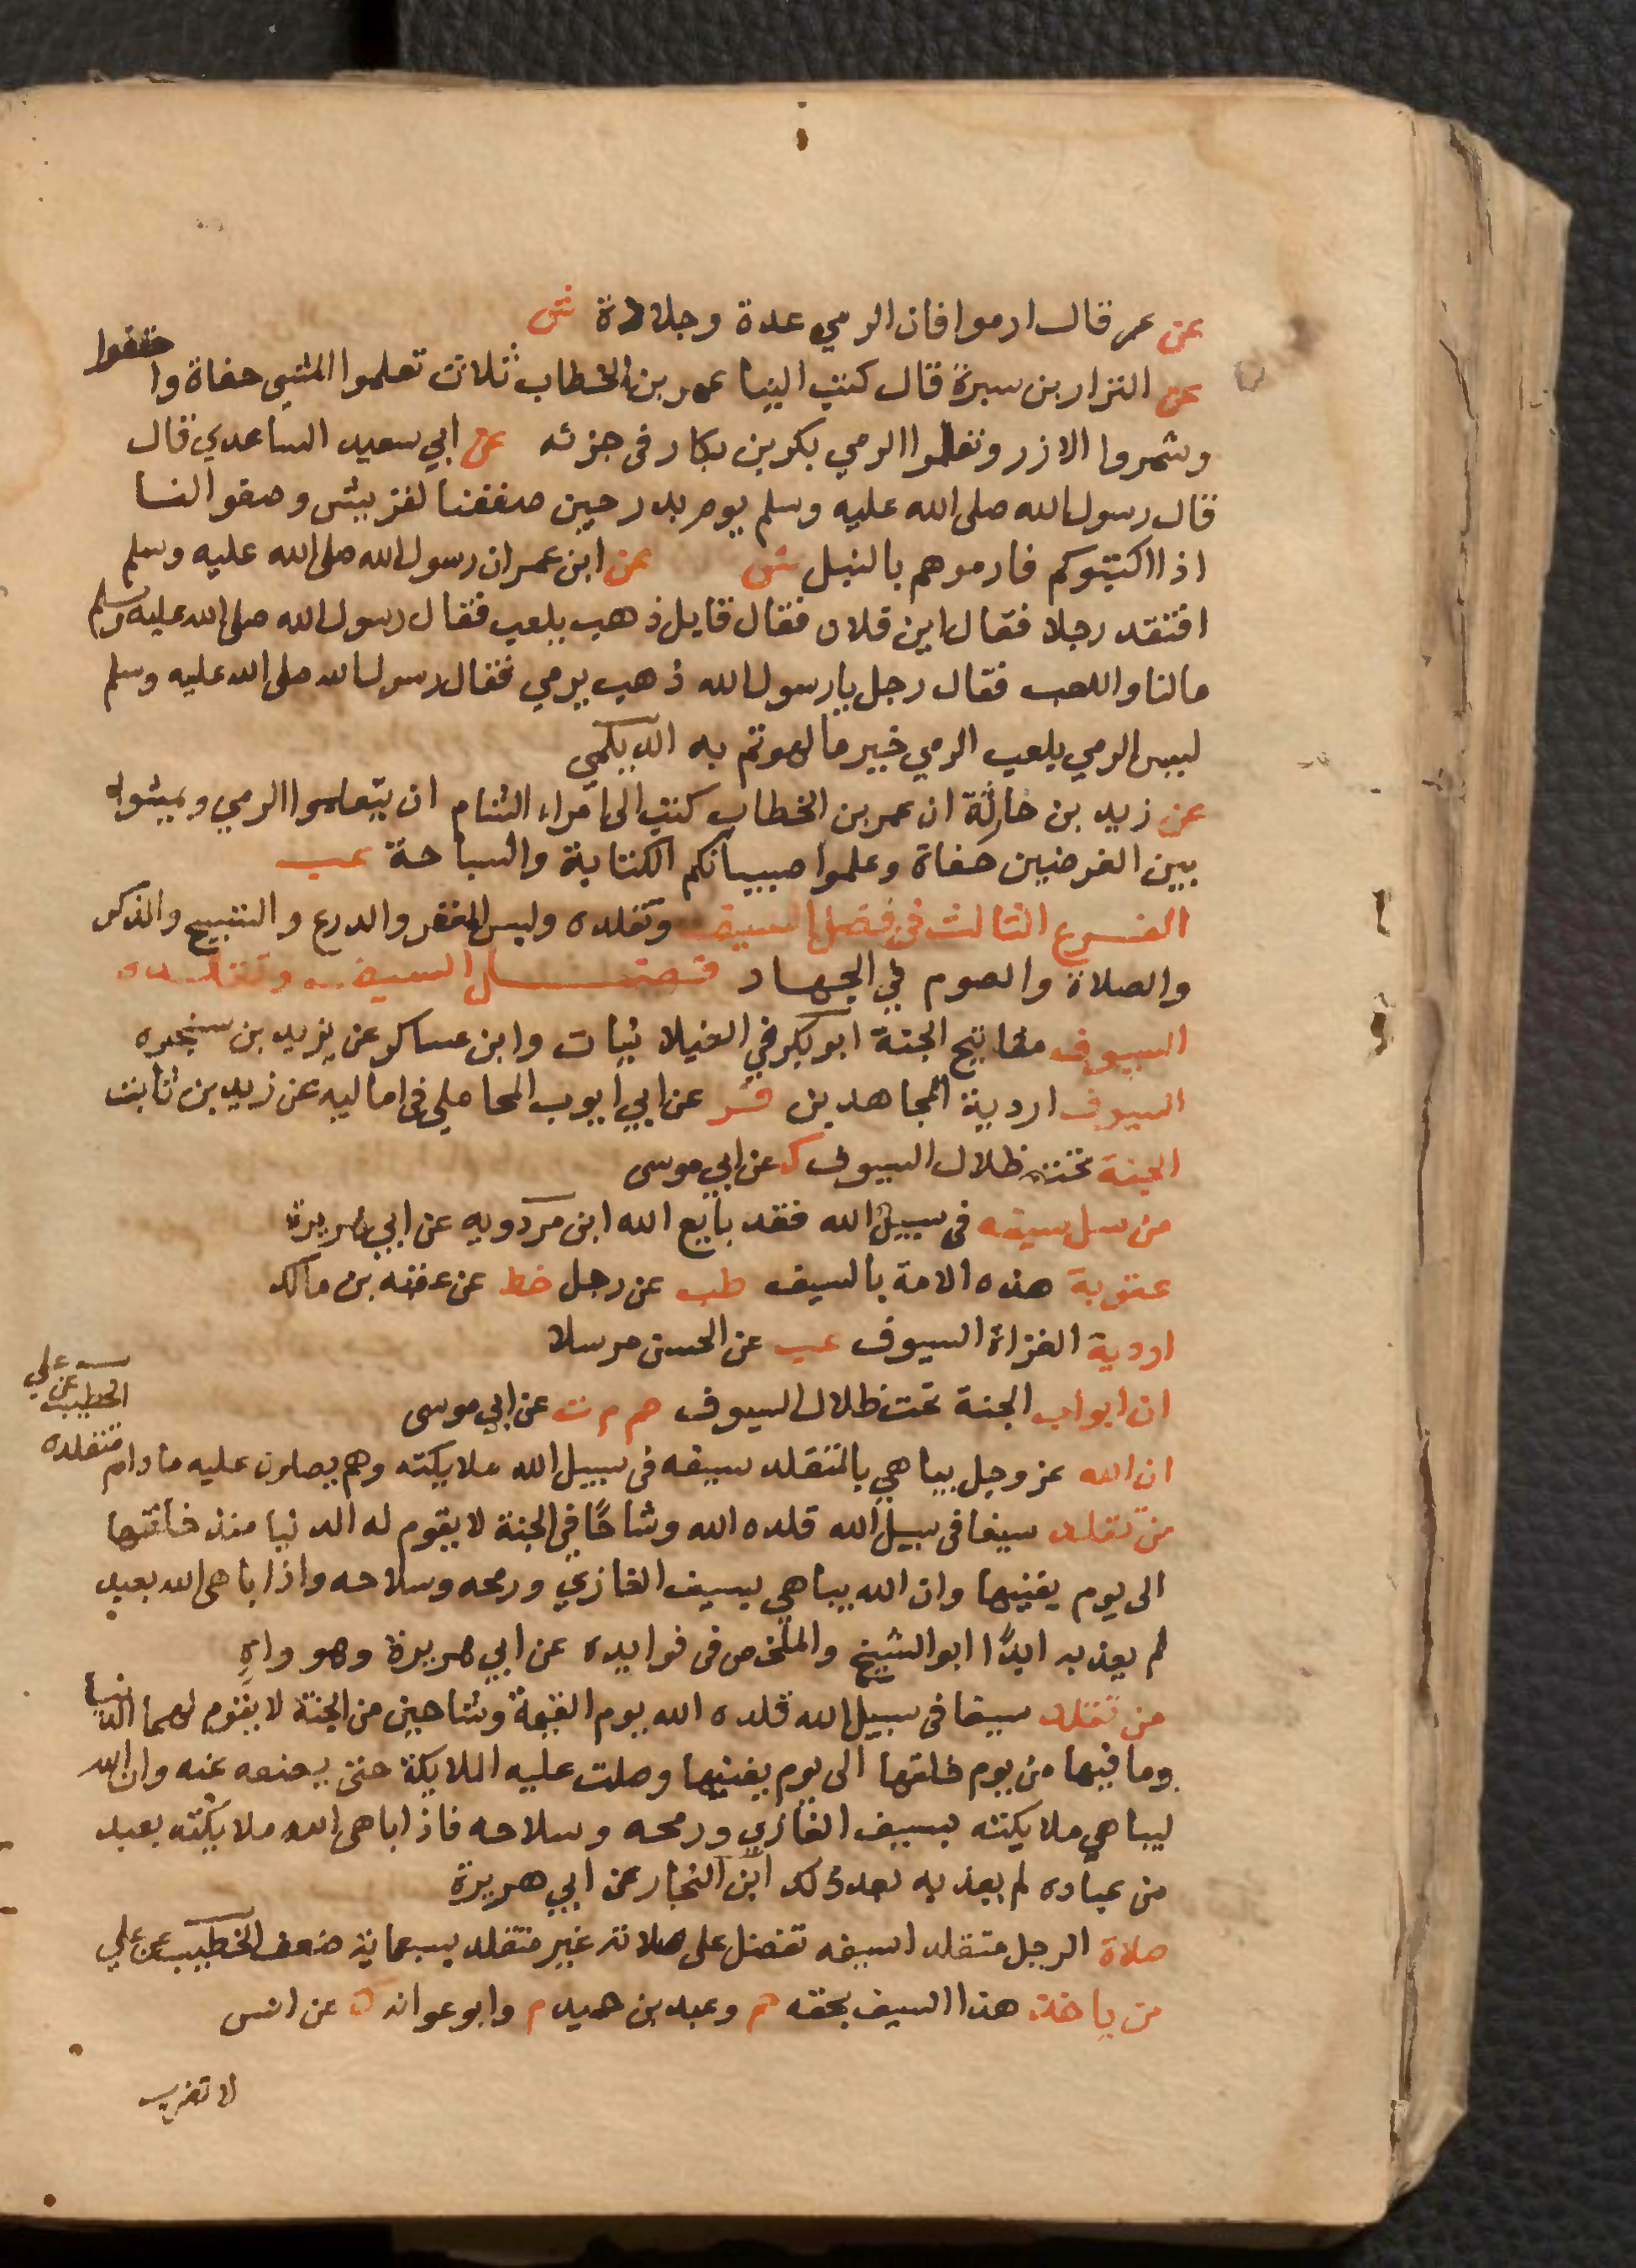 عن عمر قال ارموا فان الرمي عدة وجلادة ش
عن النزار بن سبرة قال كتب الينا عمر بن الخطاب ثلاث تعلموا المشي حفاة واحتفوا
وشمروا الازر وتعلموا الرمي بكر بن بكار فى جزئه عن ابي سعيد الساعدي قال
قال رسول الله صلى الله عليه وسلم يوم بدر حين صففنا لقريش وصفوا لنا
اذا اكثبوكم فارموهم بالنبل ش عن ابن عمر ان رسول الله صلى الله عليه وسلم
افتقد رجلا فقال اين فلان فقال قايل ذهب يلعب فقال رسول الله صلى الله عليه وسلم
مالنا واللعب فقال رجل يا رسول الله ذهب يرمي فقال رسول الله صلى الله عليه وسلم
ليس الرمي يلعب الرمي خير ما لهوتم به الديلمي
عن زيد بن حارثة ان عمر بن الخطاب كتب الى امراء الشام ان يتعلموا الرمي ويمشوا
بين الغرضين حفاة وعلموا صبيانكم الكتابة والسباحة عب
الفرع الثالث فى فضل السيف وتقلده ولبس المغفر والدرع والتسبيح والذكر
والصلاة والصوم في الجهاد فضل السيف وتقلده
السيوف مفاتيح الجنة ابو بكر في الغيلانيات وابن عساكر عن يزيد بن سنجره
السيوف اردية المجاهدين فر عن ابي ايوب المحاملي فى اماليه عن زيد بن ثابت
الجنة تحت ظلال السيوف ك عن ابي موسى
من سل سيفه فى سبيل الله فقد بايع الله ابن مردويه عن ابي هريرة
عقوبة هذه الامة بالسيف طب عن رجل خط عن عقبه بن مالك
اردية الغزاة السيوف عب عن الحسن مرسلا
ان ابواب الجنة تحت ظلال السيوف حم م ت عن ابي موسى
ان الله عز وجل يباهي بالمتقلد سيفه فى سبيل الله ملايكته وهم يصلون عليه مادام متقلده
الخطيب عن علي
من تقلد سيفا فى سبيل الله قلده الله وشاحًا في الجنة لا يقوم له الدنيا منذ خلقتها
الى يوم يفنيها وان الله يباهي بسيف الغازي ورمحه وسلاحه واذا باهى الله بعبد
لم يعذبه ابدًا ابو الشيخ والملخص فى فوايده عن ابي هريرة وهو واهٍ
من تقلد سيفا فى سبيل الله قلده الله يوم القيمة وشاحين من الجنة لا يقوم لهما الدنيا
وما فيها من يوم خلقتها الى يوم يفنيها وصلت عليه الملايكة حتى يضعه عنه وان الله
ليباهي ملايكته بسيف الغازي ورمحه وسلاحه فاذا باهى الله ملايكته بعبد
من عباده لم يعذبه بعد ذلك ابن النجار عن ابي هريرة
صلاة الرجل متقلدا سيفه تفضل على صلاته غير متقلد بسبعماية ضعف الخطيب عن علي
من ياخذ هذا السيف بحقه حم وعبد بن حميد م وابو عوانه ك عن انس
لا تغرب